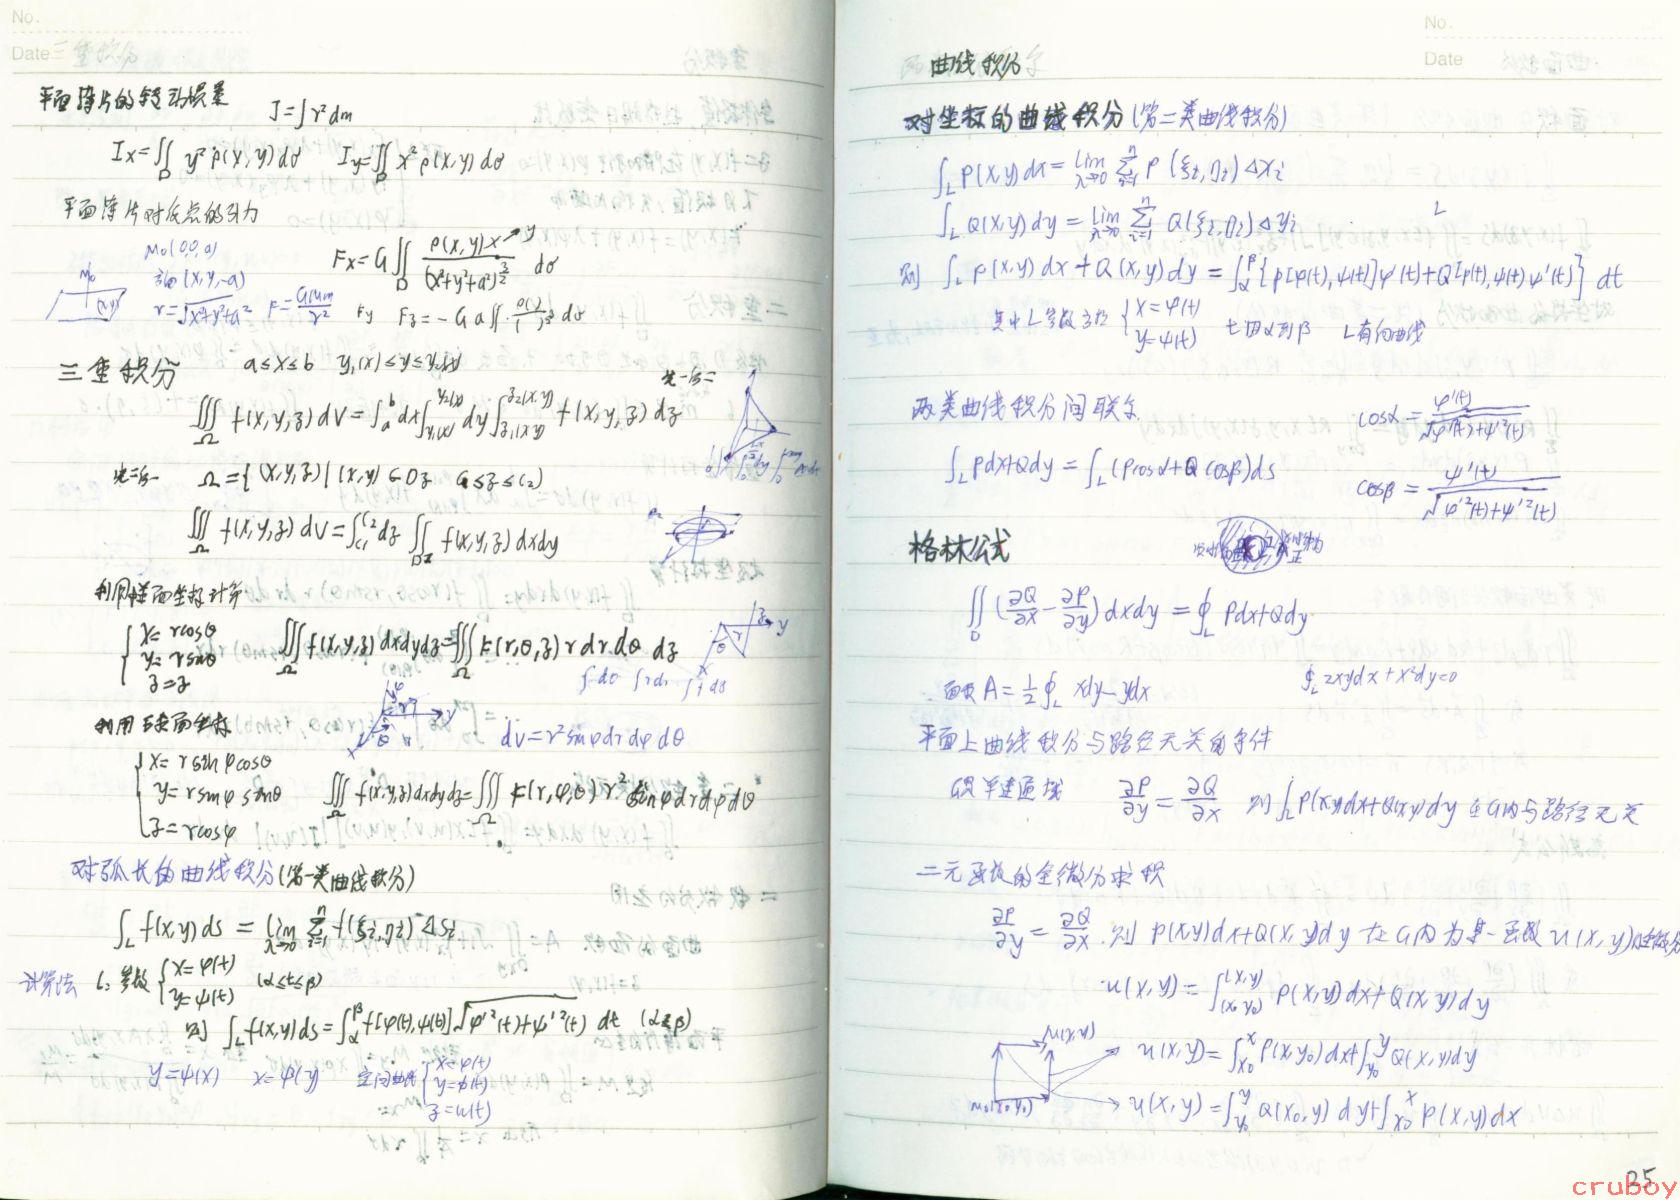 No.
Date 三重积分
平面薄片的转动惯量
J=∫r²dm
Ix=∬_D y²ρ(x,y)dσ Iy=∬_D x²ρ(x,y)dσ
平面薄片对质点的引力
M₀(0,0,a)
(x,y,-a)
r=√(x²+y²+a²) F=GMm/r²
M₀
(x,y)
Fx=G∬_D ρ(x,y)x/(x²+y²+a²)^(3/2) dσ
y
Fy Fz=-Ga∬ ρ( )/( )^(3/2) dσ
三重积分 a≤x≤b y₁(x)≤y≤y₂(x)
先一后二
∭_Ω f(x,y,z)dV=∫_a^b dx∫_{y₁(x)}^{y₂(x)} dy∫_{z₁(x,y)}^{z₂(x,y)} f(x,y,z)dz
先二后一 Ω={(x,y,z)|(x,y)∈Dz C₁≤z≤C₂}
∭_Ω f(x,y,z)dV=∫_{C₁}^{C₂}dz ∬_{Dz} f(x,y,z)dxdy
利用柱面坐标计算
{x=rcosθ
y=rsinθ
z=z
∭_Ω f(x,y,z)dxdydz=∭_Ω F(r,θ,z)rdrdθdz
利用球面坐标
dv=r²sinφdrdφdθ
{x=rsinφcosθ
y=rsinφsinθ
z=rcosφ
∭_Ω f(x,y,z)dxdydz=∭_Ω F(r,φ,θ)r²sinφdrdφdθ
对弧长的曲线积分(第一类曲线积分)
∫_L f(x,y)ds=lim_{λ→0} Σ_{i=1}^n f(ξi,ηi)ΔSi
计算法 L:参数{x=φ(t)
y=ψ(t) (α≤t≤β)
则 ∫_L f(x,y)ds=∫_α^β f[φ(t),ψ(t)]√(φ'²(t)+ψ'²(t)) dt (α<β)
y=ψ(x) x=φ(y) 空间曲线{x=φ(t)
y=ψ(t)
z=ω(t)
No.
Date
曲线积分
对坐标的曲线积分(第二类曲线积分)
∫_L P(x,y)dx=lim_{λ→0} Σ_{i=1}^n P(ξi,ηi)Δxi
∫_L Q(x,y)dy=lim_{λ→0} Σ_{i=1}^n Q(ξi,ηi)Δyi
L
则 ∫_L P(x,y)dx+Q(x,y)dy=∫_α^β{P[φ(t),ψ(t)]φ'(t)+Q[φ(t),ψ(t)ψ'(t)}dt
其中L参数方程{x=φ(t)
y=ψ(t) t由α到β L有向曲线
两类曲线积分间联系
cosα=φ'(t)/√(φ'²(t)+ψ'²(t))
∫_L Pdx+Qdy=∫_L(Pcosα+Qcosβ)ds
cosβ=ψ'(t)/√(φ'²(t)+ψ'²(t))
格林公式
∬_D(∂Q/∂x-∂P/∂y)dxdy=∮_L Pdx+Qdy
面积 A=½∮_L xdy-ydx
∮_L 2xydx+x²dy=0
平面上曲线积分与路径无关的条件
G是单连通域 ∂P/∂y=∂Q/∂x 则∫_L P(x,y)dx+Q(x,y)dy 在G内与路径无关
二元函数的全微分求积
∂P/∂y=∂Q/∂x.则 P(x,y)dx+Q(x,y)dy 在G内为某一函数u(x,y)的全微分
u(x,y)=∫_{(x₀,y₀)}^{(x,y)} P(x,y)dx+Q(x,y)dy
M(x,y)
u(x,y)=∫_{x₀}^x P(x,y₀)dx+∫_{y₀}^y Q(x,y)dy
M₀(x₀,y₀)
u(x,y)=∫_{y₀}^y Q(x₀,y)dy+∫_{x₀}^x P(x,y)dx
25
cruboy